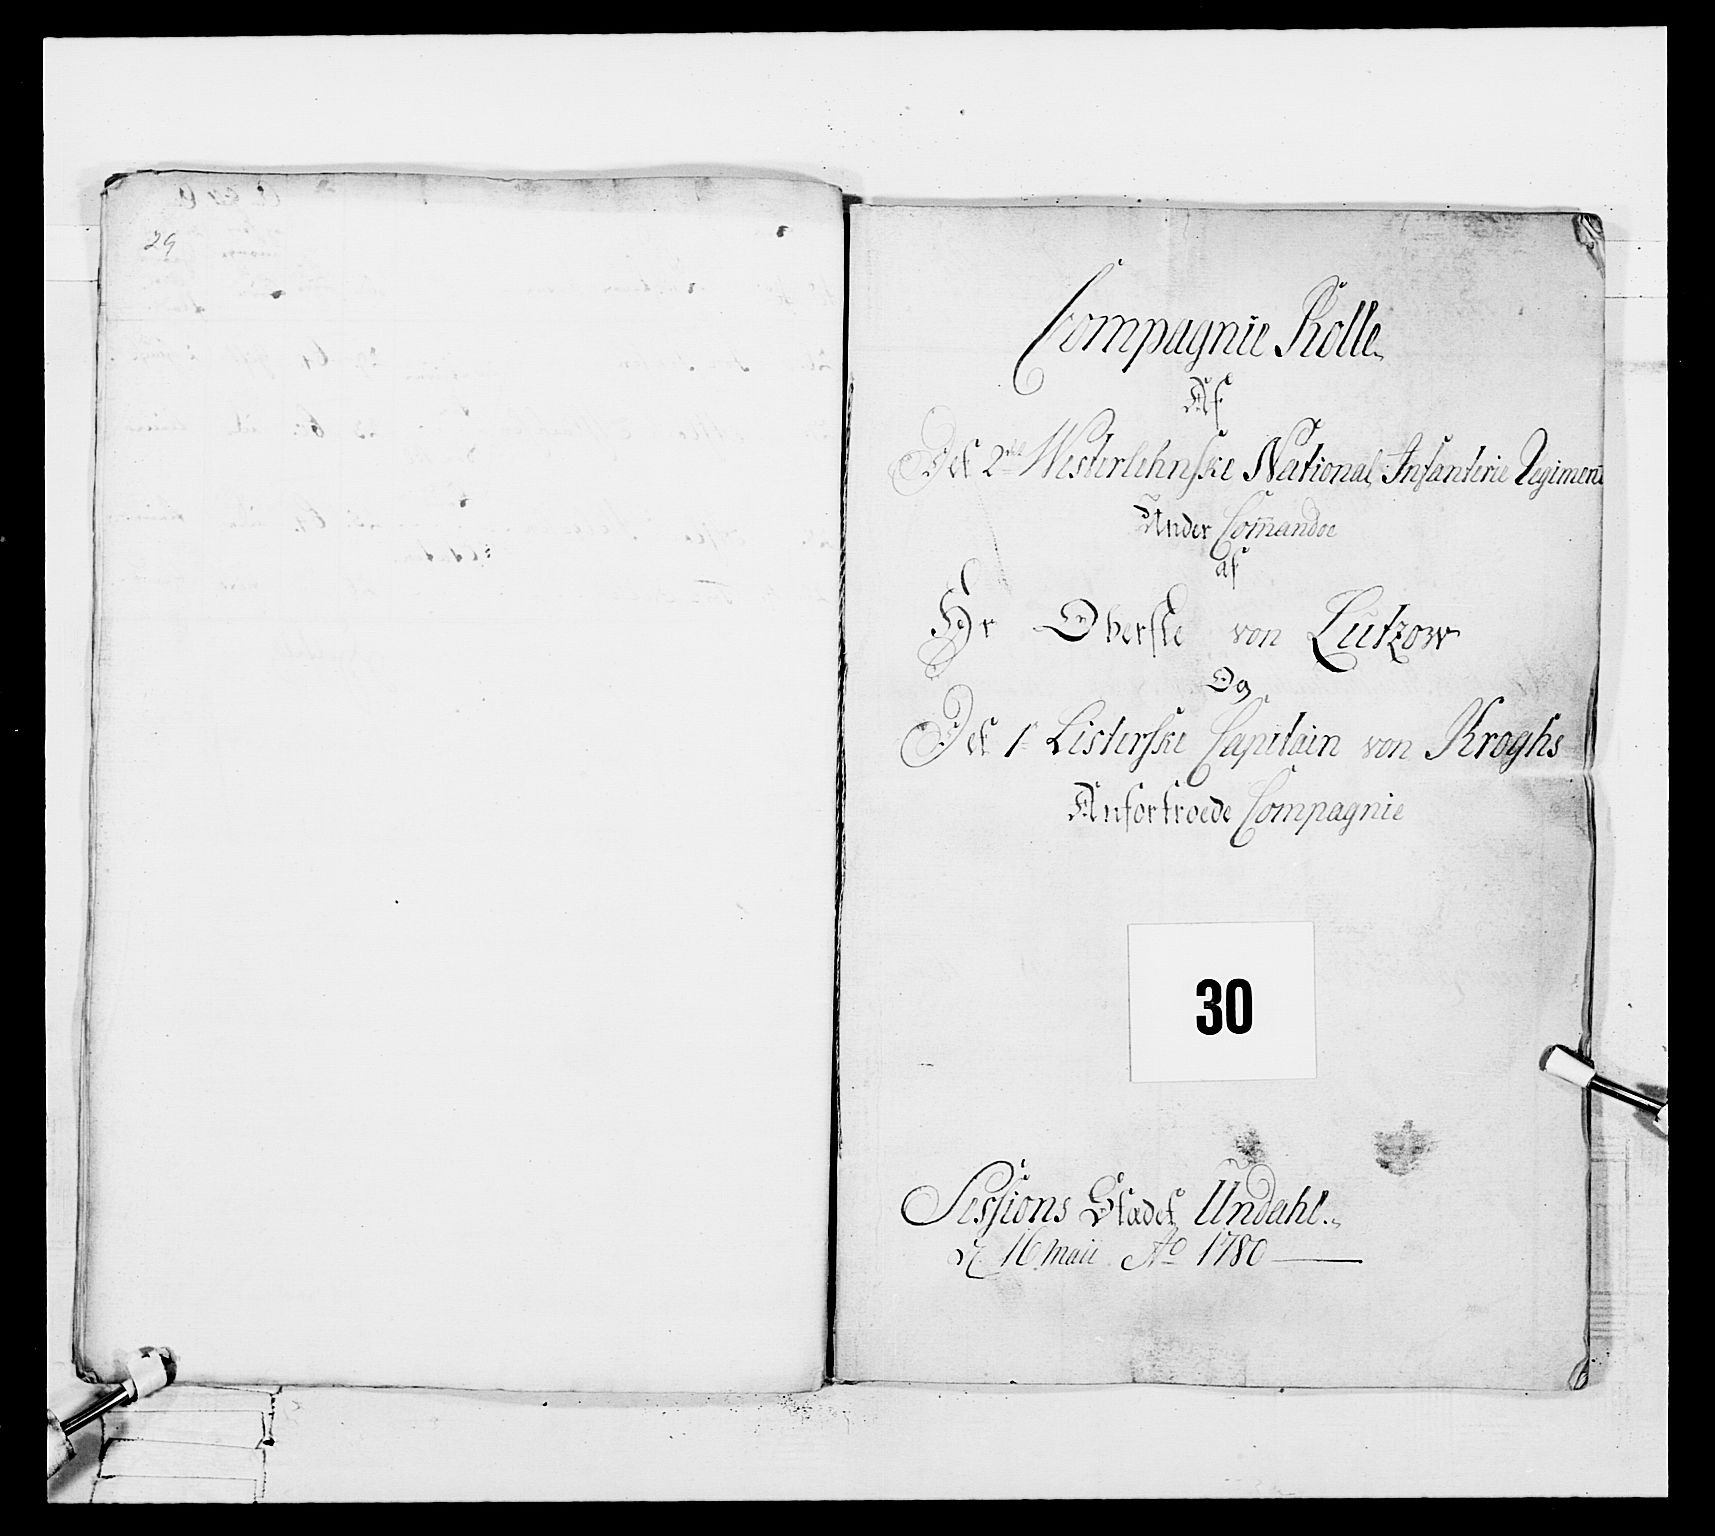 29
Compagnie Rolle
Af
Det 2det Westerlehnske National Infanterie Regiment
Under Com̄andoe
af
Hr Oberste von Lutzow
Og
Det 1te Listerske Capitain von Kroghs
Anfortroede Compagnie
30
Sessions Stædet Undahl
d. 16 Maii Ao 1780